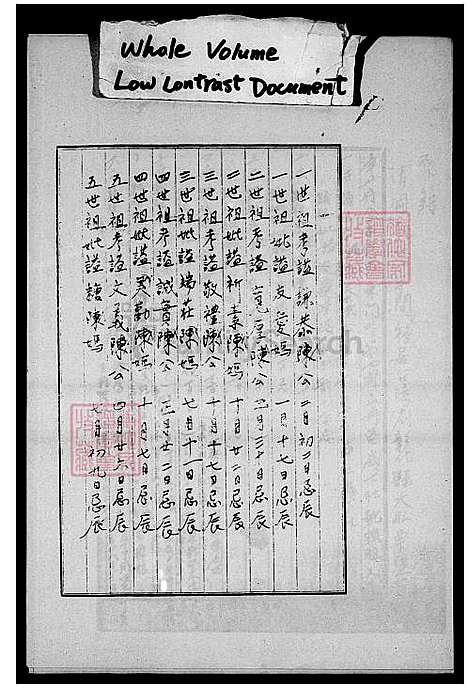 Whole Volume
Low Contrast Document
一世祖考諡謙恭陳公 二月初二日忌辰
一世祖妣諡友愛媽 一月十七日忌辰
二世祖考諡寬厚陳公 三月三十日忌辰
二世祖妣諡祈素陳媽 十月廿二日忌辰
三世祖考諡敬禮陳公 十月十七日忌辰
三世祖妣諡瑞莊陳媽 七月十一日忌辰
四世祖考諡誠實陳公 正月廿二日忌辰
四世祖妣諡 勤陳媽 十一月七日忌辰
五世祖考諡文義陳公 四月廿六日忌辰
五世祖妣諡 陳媽 七月初九日忌辰